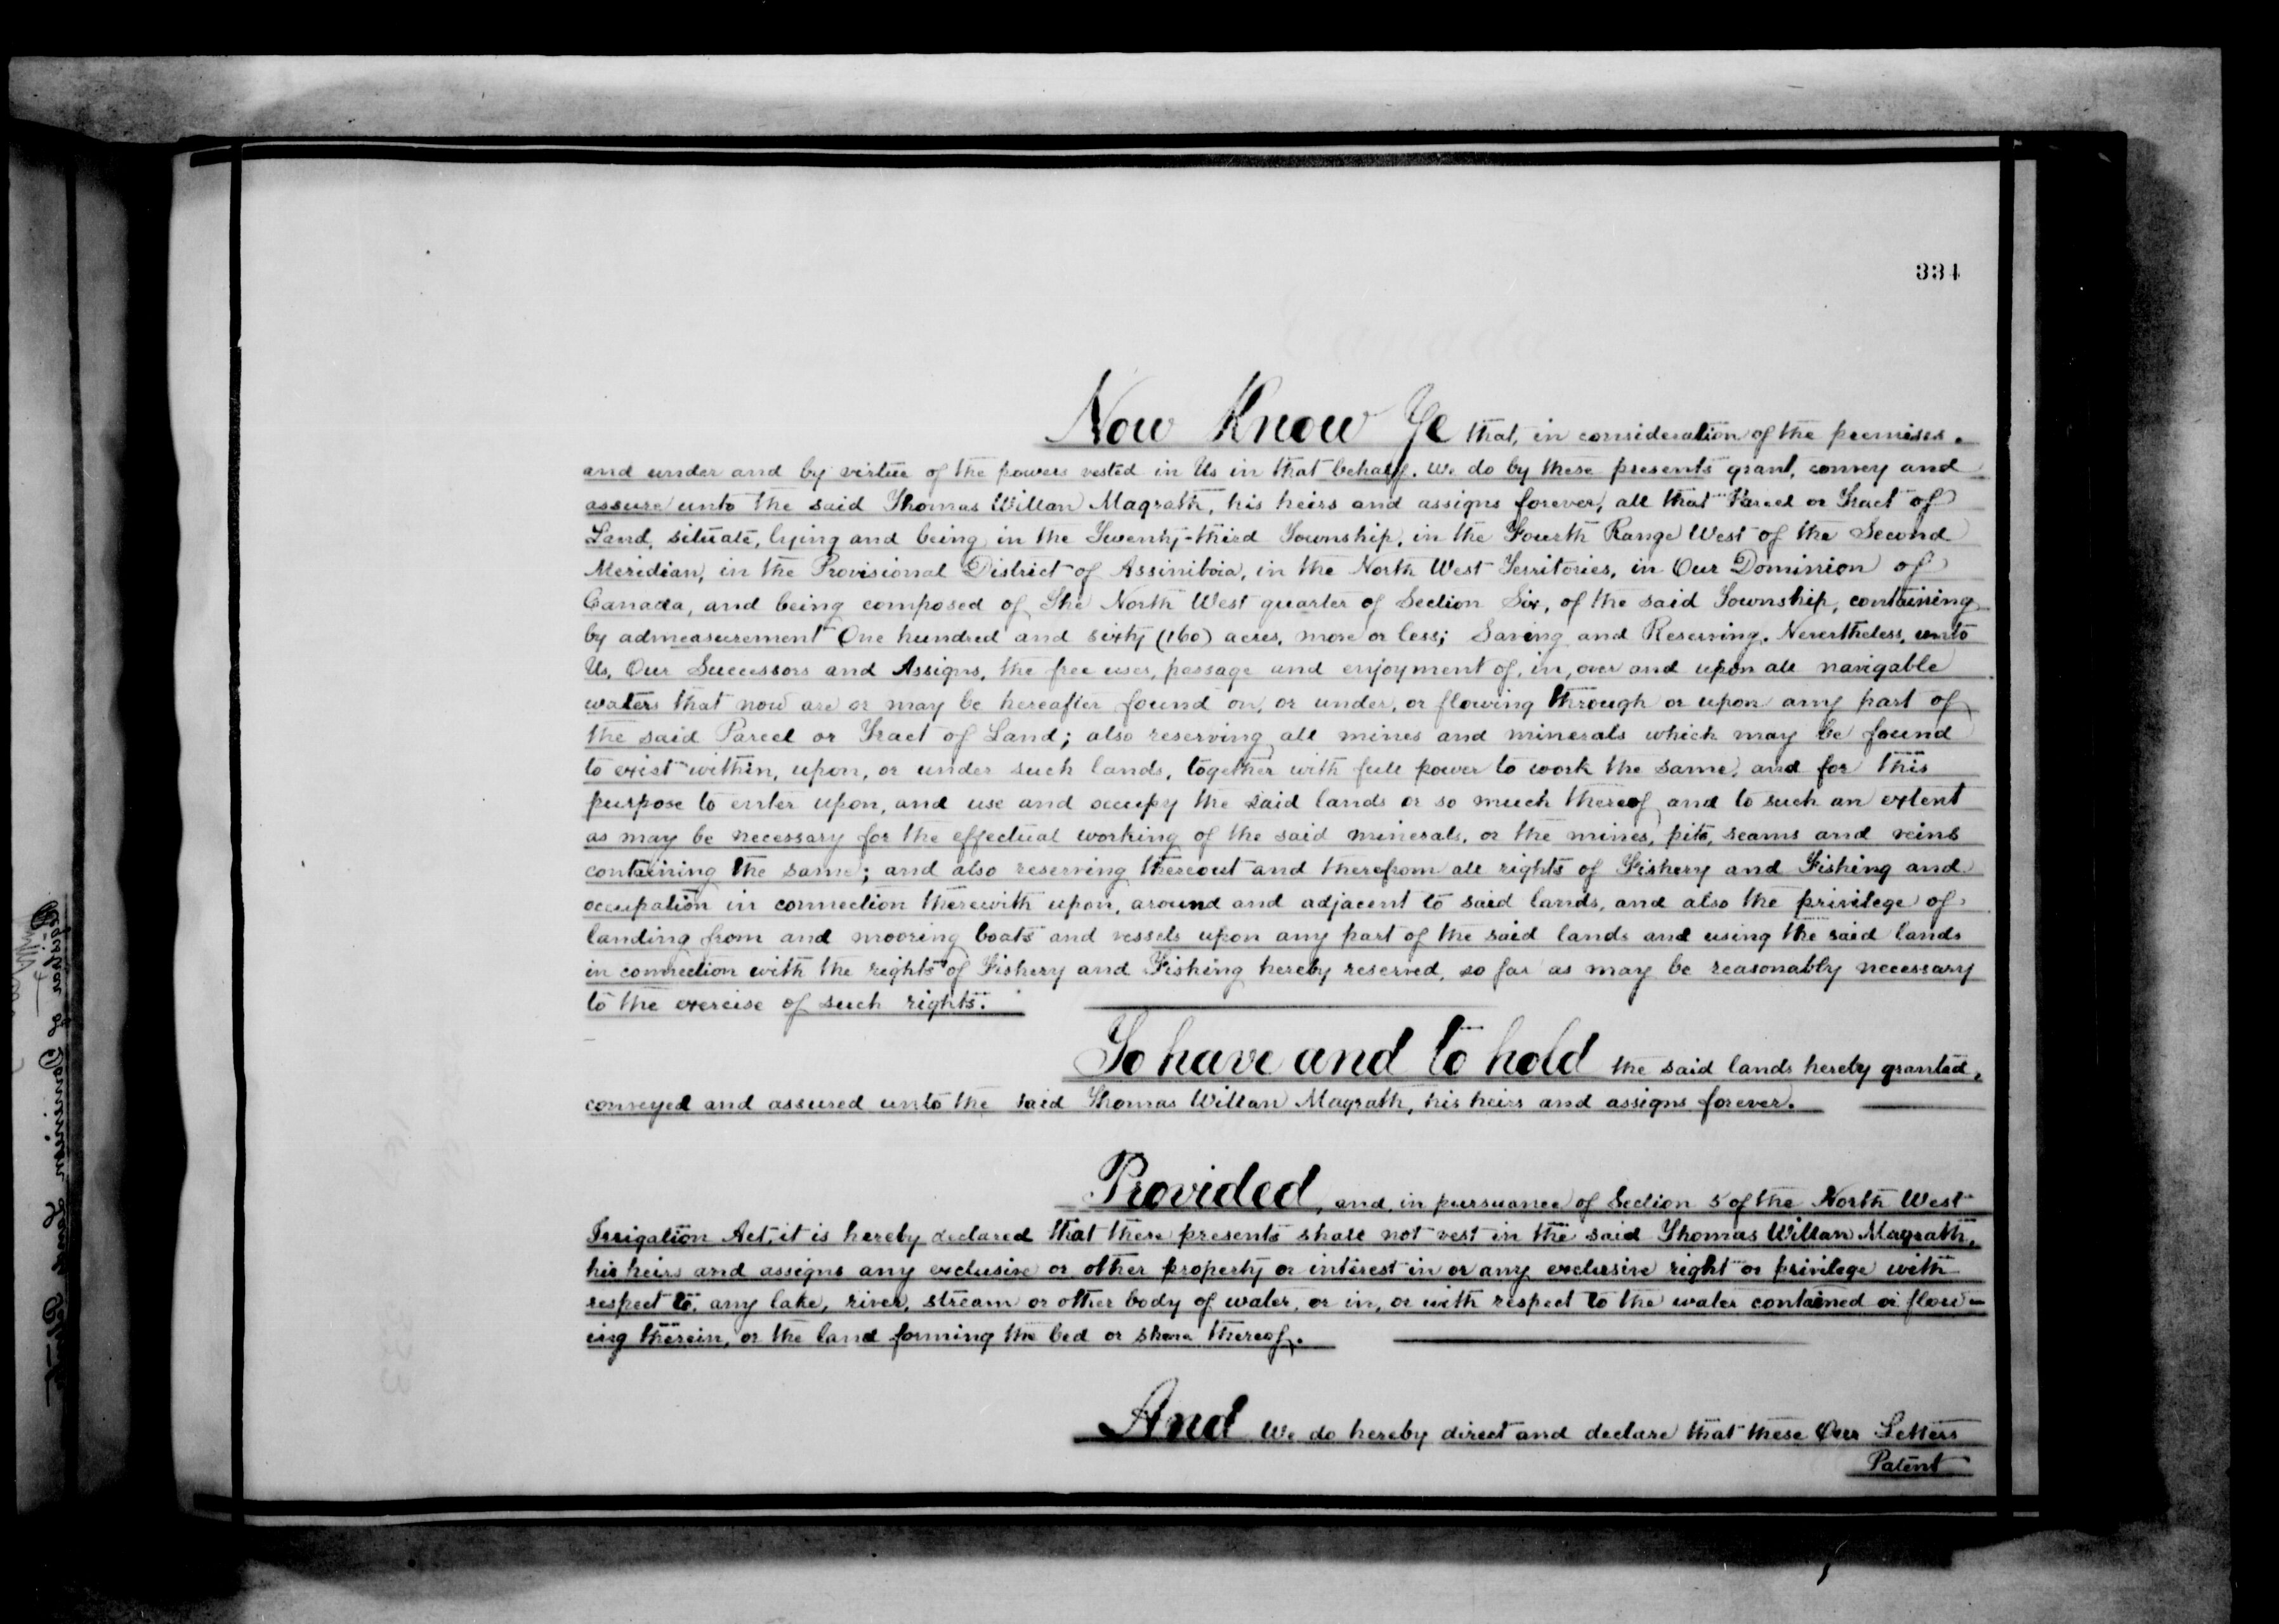 334
Now Know Ye that, in consideration of the premises.
and under and by virtue of the powers vested in Us in that behalf. We do by these presents grant, convey and
assure unto the said Thomas Willan Magrath, his heirs and assigns forever, all that Parcel or Tract of
Land, situate, lying and being in the Twenty-third Township, in the Fourth Range West of the Second
Meridian, in the Provisional District of Assiniboia, in the North West Territories, in Our Dominion of
Canada, and being composed of The North West quarter of Section Six, of the said Township, containing
by admeasurement One hundred and sixty (160) acres, more or less; Saving and Reserving, Nevertheless, unto
Us, Our Successors and Assigns, the free uses, passage and enjoyment of, in, over and upon all navigable
waters that now are or may be hereafter found on, or under, or flowing through or upon any part of
the said Parcel or Tract of Land; also reserving all mines and minerals which may be found
to exist within, upon, or under such lands, together with full power to work the same, and for this
purpose to enter upon, and use and occupy the said lands or so much thereof and to such an extent
as may be necessary for the effectual working of the said minerals, or the mines, pits, seams and veins
containing the same; and also reserving thereout and therefrom all rights of Fishery and Fishing and
occupation in connection therewith upon, around and adjacent to said lands, and also the privilege of
landing from and mooring boats and vessels upon any part of the said lands and using the said lands
in connection with the rights of Fishery and Fishing hereby reserved, so far as may be reasonably necessary
to the exercise of such rights.
To have and to hold the said lands hereby granted,
conveyed and assured unto the said Thomas Willan Magrath, his heirs and assigns forever.
Provided, and in pursuance of Section 5 of the North West
Irrigation Act, it is hereby declared that these presents shall not vest in the said Thomas Willan Magrath,
his heirs and assigns any exclusive or other property or interest in or any exclusive right or privilege with
respect to, any lake, river, stream or other body of water, or in, or with respect to the water contained or flow-
ing therein, or the land forming the bed or shore thereof.
And We do hereby direct and declare that these Our Letters
Patent
Registrar of Dominion Lands Patents